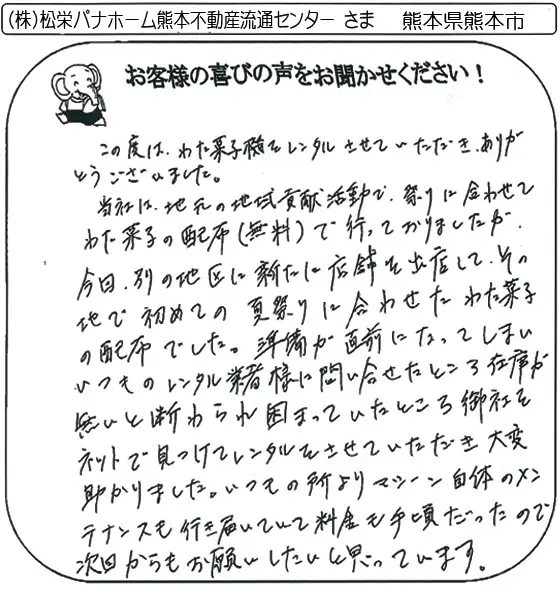 (株)松栄パナホーム熊本不動産流通センター さま　熊本県熊本市
お客様の喜びの声をお聞かせください！
この度は、わた菓子機をレンタルさせていただき、ありが
とうございました。
当社は、地元の地域貢献活動で、祭りに合わせて
わた菓子の配布(無料)で行っておりましたが、
今回、別の地区に新たに店舗を出店して、その
地で初めての夏祭りに合わせたわた菓子
の配布でした。準備が直前になってしまい
いつものレンタル業者様に問い合せたところ在庫が
無いと断わられ困まっていたところ御社を
ネットで見つけてレンタルをさせていただき大変
助かりました。いつもの所よりマシーン自体のメン
テナンスも行き届いていて料金も手頃だったので
次回からもお願いしたいと思っています。